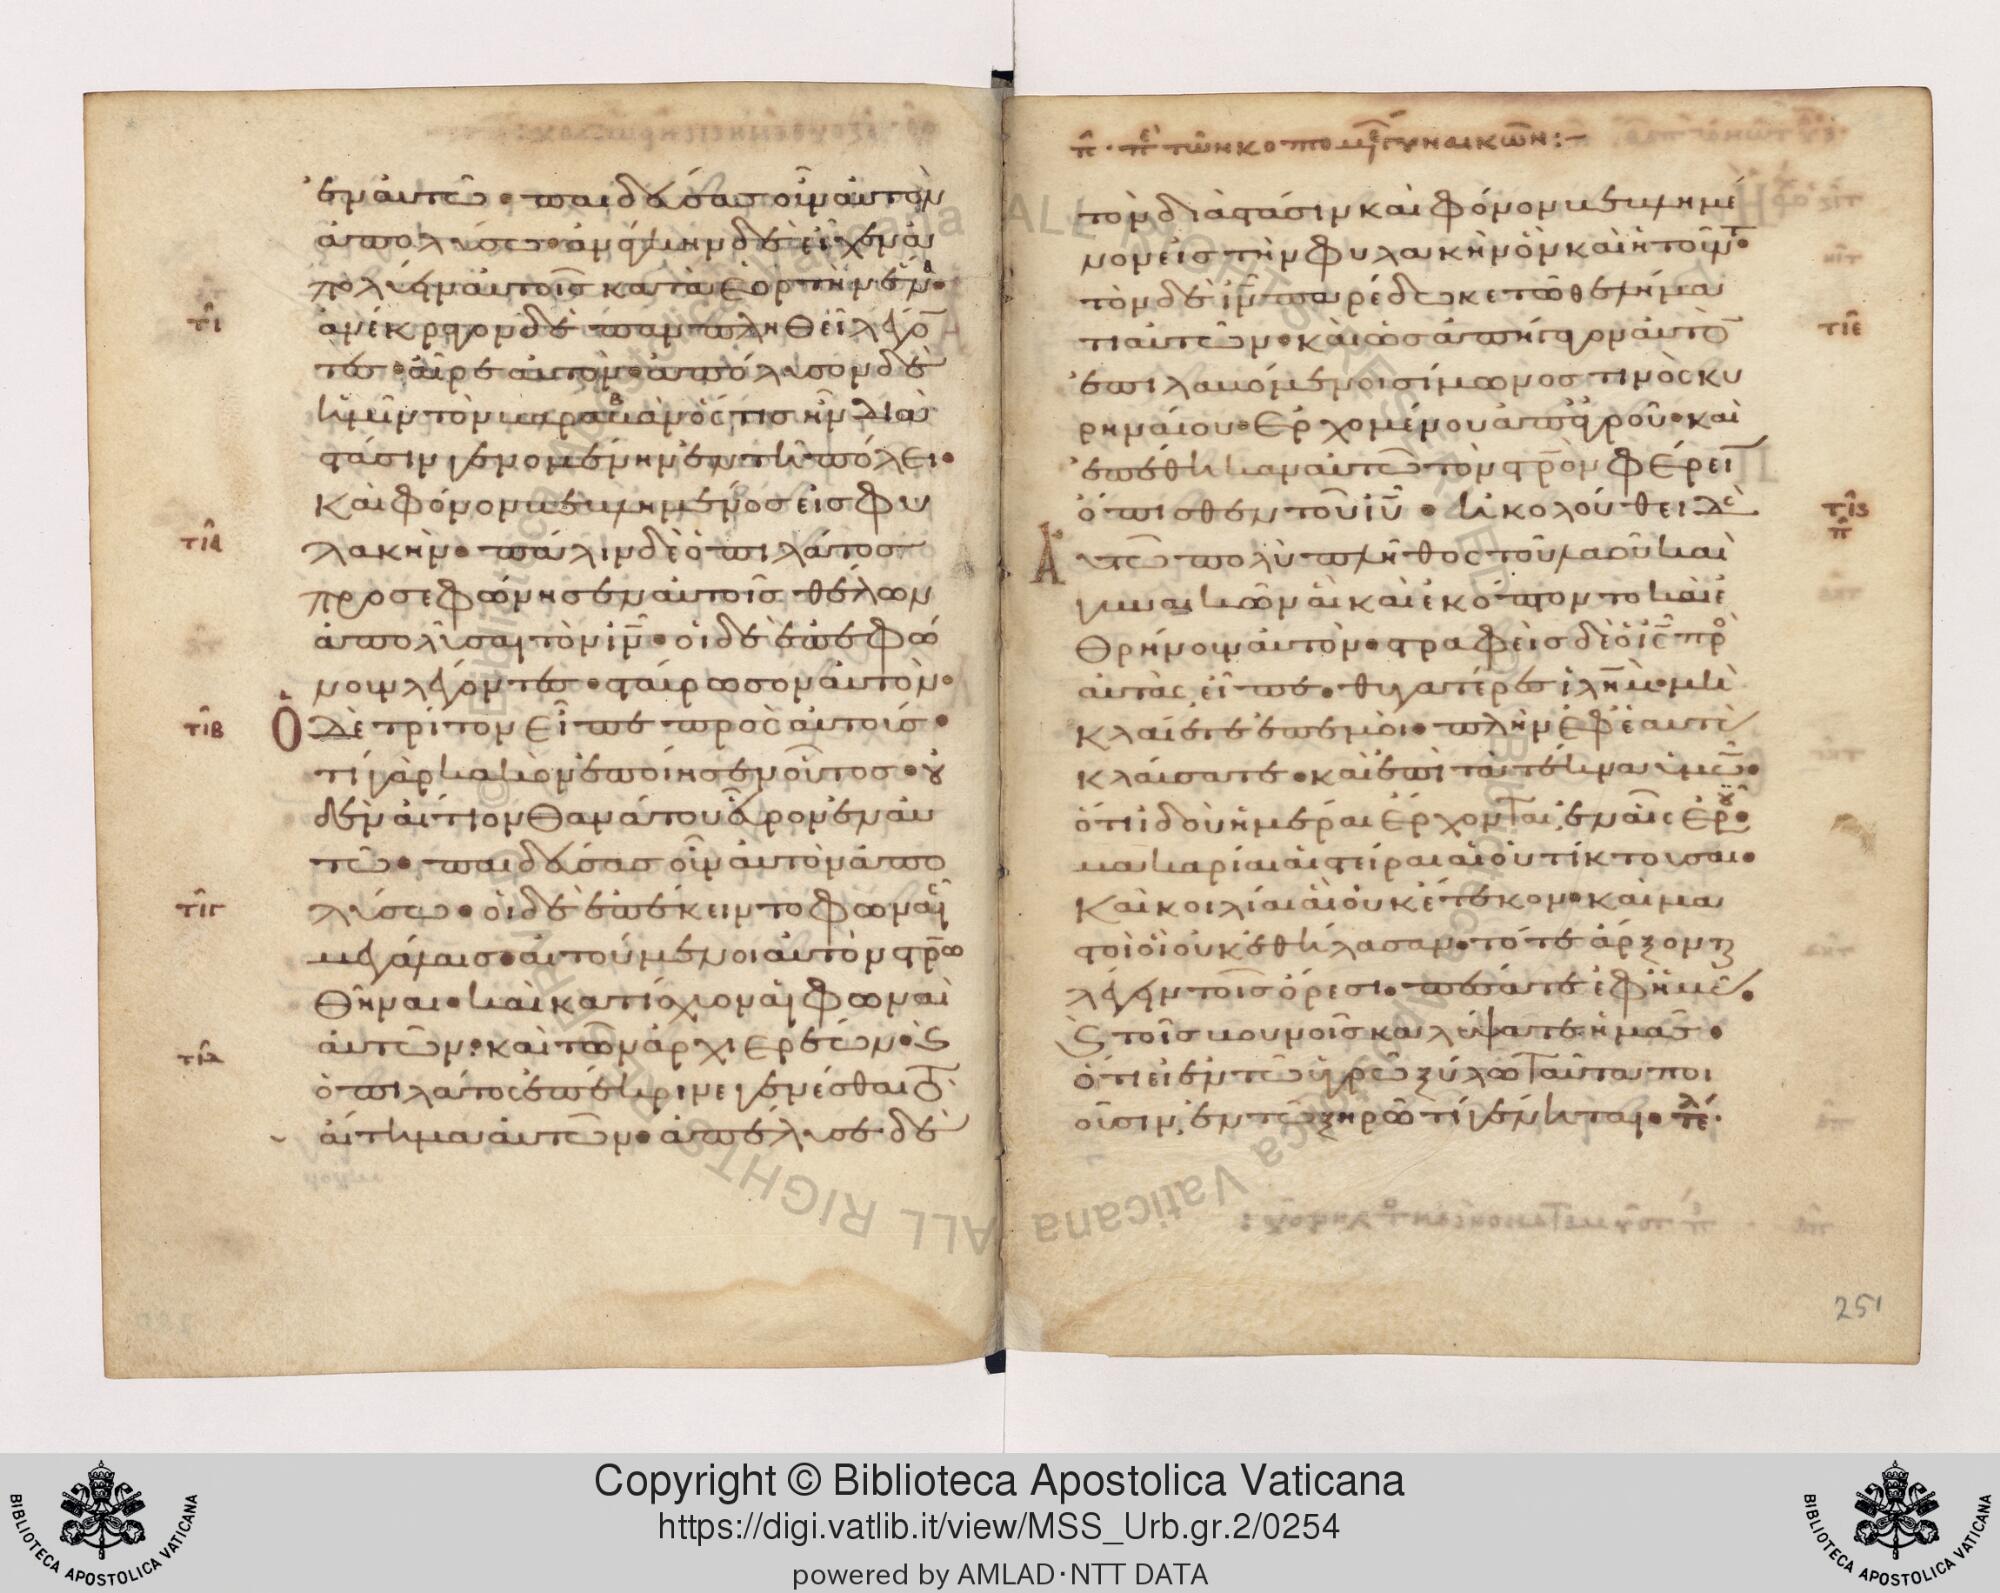 ἐν αὐτῶ· παιδεύσας οὖν αὐτὸν
ἀπολύσω· ἀνάγκην δὲ εἶχεν ἀ
πολύειν αὐτοῖς κατὰ ἑορτὴν ἕνα·
τι
ἀνέκραγον δὲ παμπληθεὶ λέγον
τες· αἶρε αὐτὸν· ἀπόλυσον δὲ
ἡμῖν τὸν βαραβὰν ὅς τις ἦν διὰ
στάσιν γενομένην ἐν τῆ πόλει·
καὶ φόνον βεβλημένος εἰς φυ
τια
λακὴν· πάλιν δὲ ὁ πιλάτος
προσεφώνησεν αὐτοῖς θέλων
ἀπολῦσαι τὸν ιν· οἱ δὲ ἐπεφώ
νουν λέγοντες· σταύρωσον αὐτὸν·
τιβ
Ὁ δὲ τρίτον εἶπε πρὸς αὐτούς·
τί γὰρ κακὸν ἐποίησεν οὗτος· οὐ
δὲν αἴτιον θανάτου εὗρον ἐν αὐ
τῶ· παιδεύσας οὖν αὐτὸν ἀπο
τιγ
λύσω· οἱ δὲ ἐπέκειντο φωναῖς
μεγάλαις· αἰτούμενοι αὐτὸν στρω
θῆναι· καὶ κατίσχυον αἱ φωναὶ
τιδ
αὐτῶν· καὶ τῶν ἀρχιερέων· καὶ
ὁ πιλάτος ἐπέκρινε γενέσθαι τὸ
αἴτημα αὐτῶν· ἀπέλυσε δὲ
π· πε τῶν κοπτομένων γυναικῶν:-
τὸν διὰ στάσιν καὶ φόνον βεβλημέ
νον εἰς τὴν φυλακὴν ὃν καὶ ἠτοῦντο·
τιε
τὸν δὲ ιν παρέδωκε τῶ θελήμα
τι αὐτῶν· καὶ ὡς ἀπήγαγον αὐτὸν
ἐπιλαβόμενοι σίμωνος τινὸς κυ
ρηναίου· ἐρχομένου ἀπ ἀγροῦ· καὶ
ἐπέθηκαν αὐτῶ τὸν στρον φέρειν
τις
π
ὄπισθεν τοῦ ιυ· ἠκολούθει δὲ
Αὐτῶ πολὺ πλῆθος τοῦ λαοῦ καὶ
γυναικῶν αἳ καὶ ἐκόπτοντο καὶ ἐ
θρήνουν αὐτὸν· στραφεὶς δὲ ὁ ις πρὸς
αὐτὰς εἶπε· θυγατέρες ιλημ· μὴ
κλαίετε ἐπ ἐμοὶ· πλὴν ἐφ ἑαυτὰς
κλαίσατε· καὶ ἐπὶ τὰ τέκνα ὑμῶν·
ὅτι ἰδοὺ ἡμέραι ἔρχονται ἐν αἷς ἐροῦσι·
μακαρίαι αἱ στείραι αἱ οὐ τίκτουσαι·
καὶ κοιλίαι αἳ οὐκ ἔτεκον· καὶ μα
στοὶ οἳ οὐκ ἐθήλασαν· τότε ἄρξονται
λέγειν τοῖς ὄρεσι· πέσατε ἐφ ἡμᾶς·
καὶ τοῖς βουνοῖς καλύψατε ἡμᾶς·
ὅτι εἰ ἐν τῶ ὑγρῶ ξύλω ταῦτα ποι
οῦσιν, ἐν τῶ ξηρῶ τί γένηται· τέλ
251
Copyright © Biblioteca Apostolica Vaticana
https://digi.vatlib.it/view/MSS_Urb.gr.2/0254
powered by AMLAD·NTT DATA
BIBLIOTECA APOSTOLICA VATICANA
BIBLIOTECA APOSTOLICA VATICANA